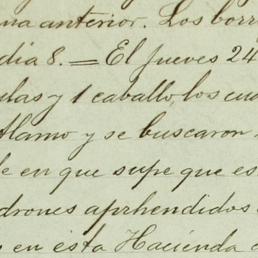 na anterior. Los borr
dia 8. = El jueves 24
ulas y 1 caballo, los cua
Alamo y se buscaron
de en que supe que es
drones aprhendidos
en esta Hacienda